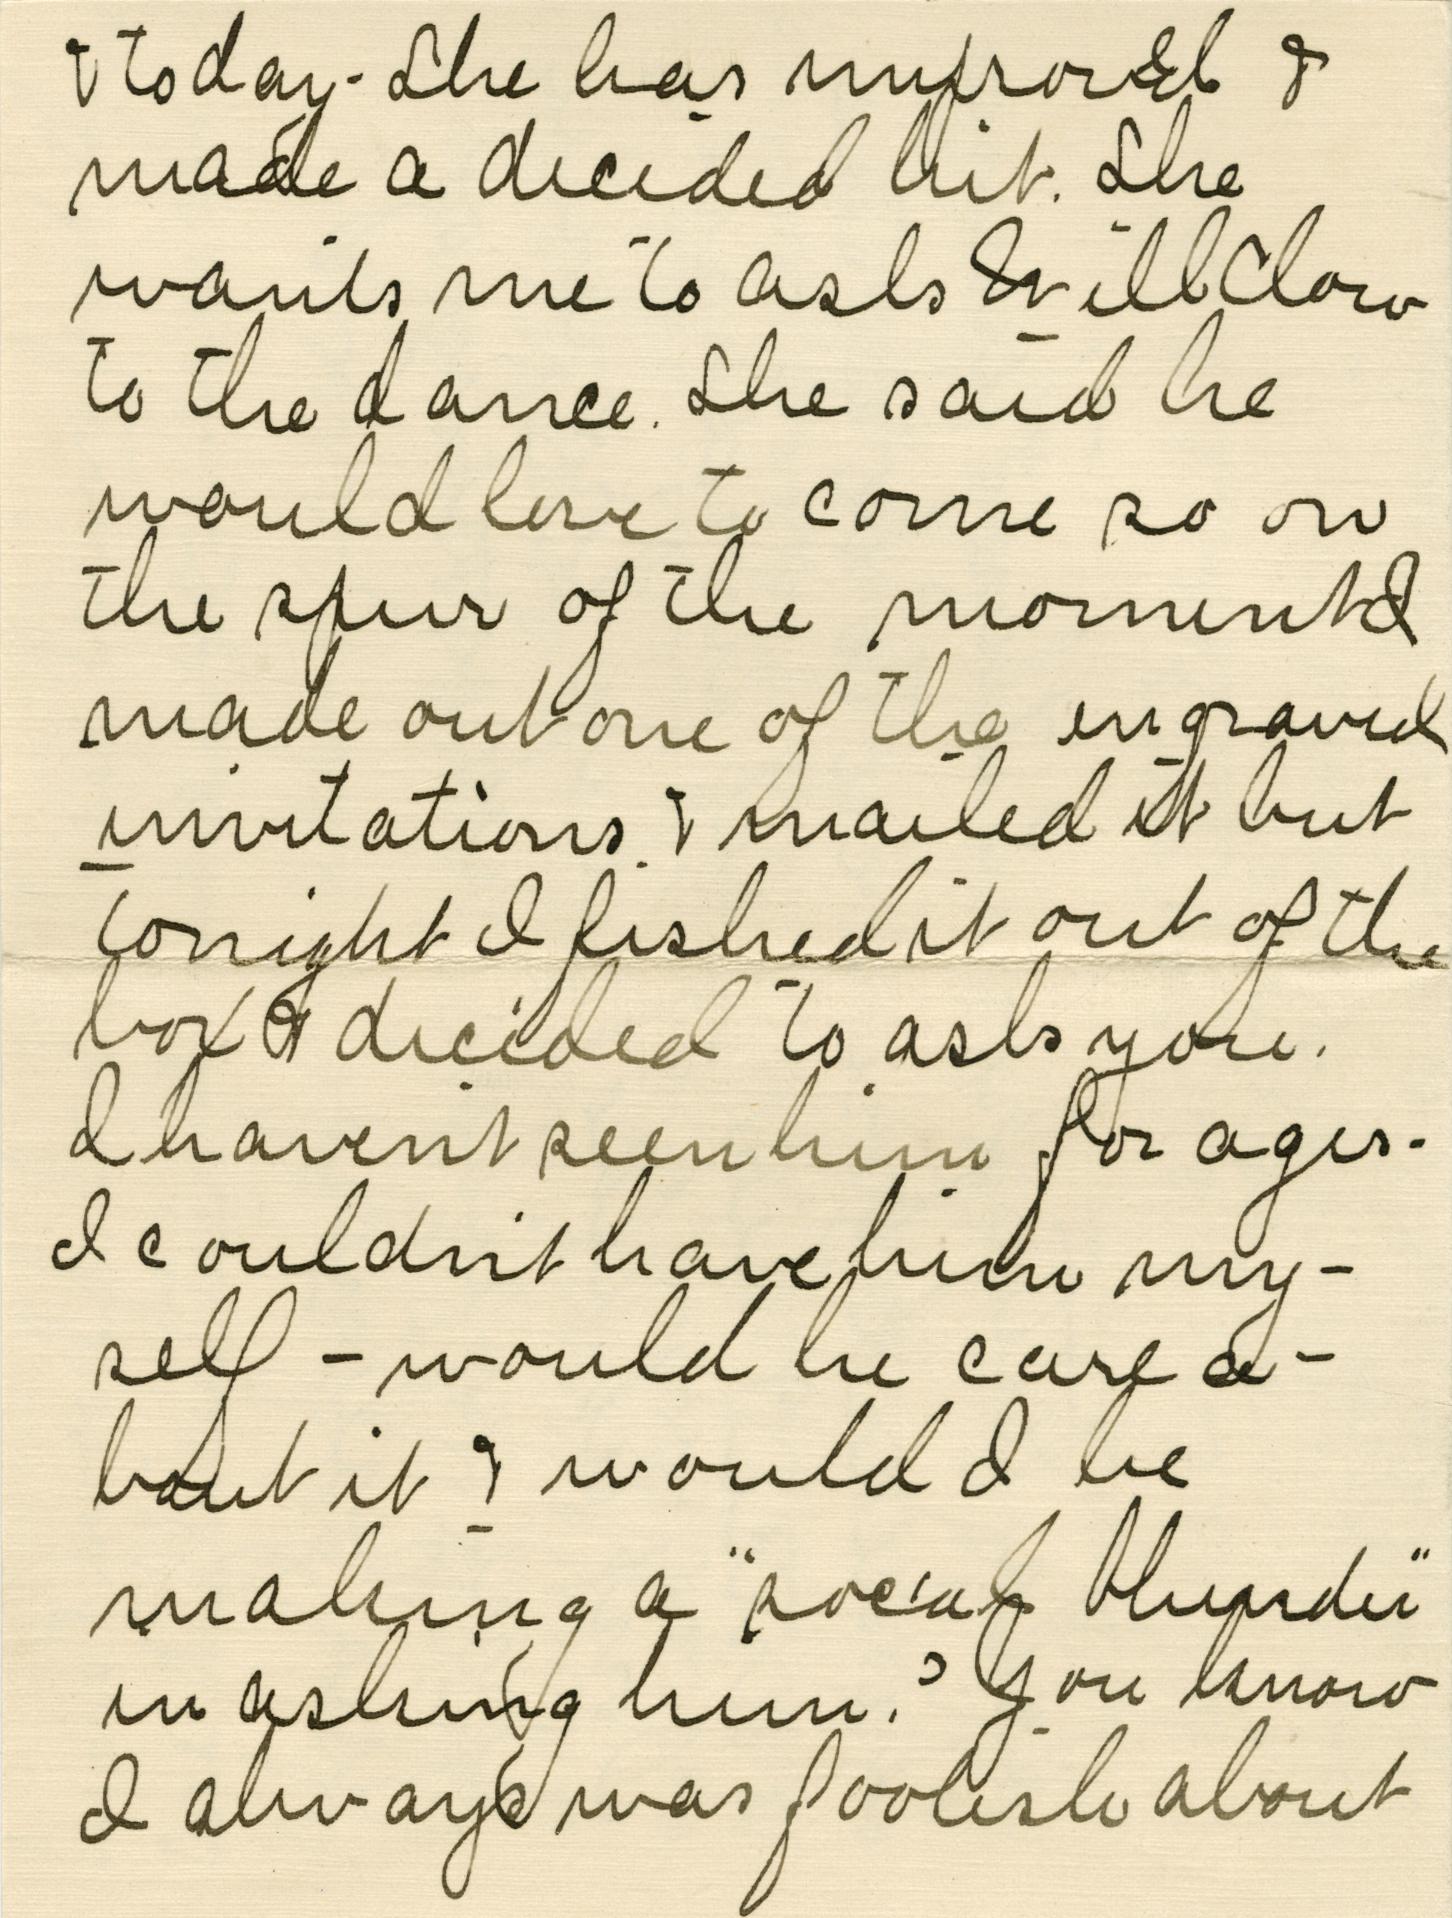 & today. She has improved &
made a decided hit. She
wants me to ask Will Clow
to the dance. She said he
would love to come so on
the spur of the moment I
made out one of the engraved
invitations & mailed it but
tonight I fished it out of the
box & decided to ask you.
I haven't seen him for ages.
I couldn't have him my-
self - would he care a-
bout it & would I be
making a "social blunder"
in asking him? You know
I always was foolish about